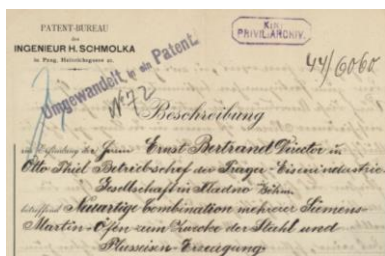 PATENT-BUREAU
des
INGENIEUR H. SCHMOLKA
in Prag, Heinrichsgasse
K.K.
PRIVIL.ARCHIV.
44/6060
Umgewandelt in ein Patent.
No 72
Beschreibung
der Erfindung der Herren Ernst Bertrand Director u.
Otto Thiel Betriebschef der Prager-Eisenindustrie
Gesellschaft in Kladno Böhm.
betreffend Neuartige Combination mehrerer Siemens-
Martin-Öfen zum Zwecke der Stahl und
Flusseisen-Erzeugung.